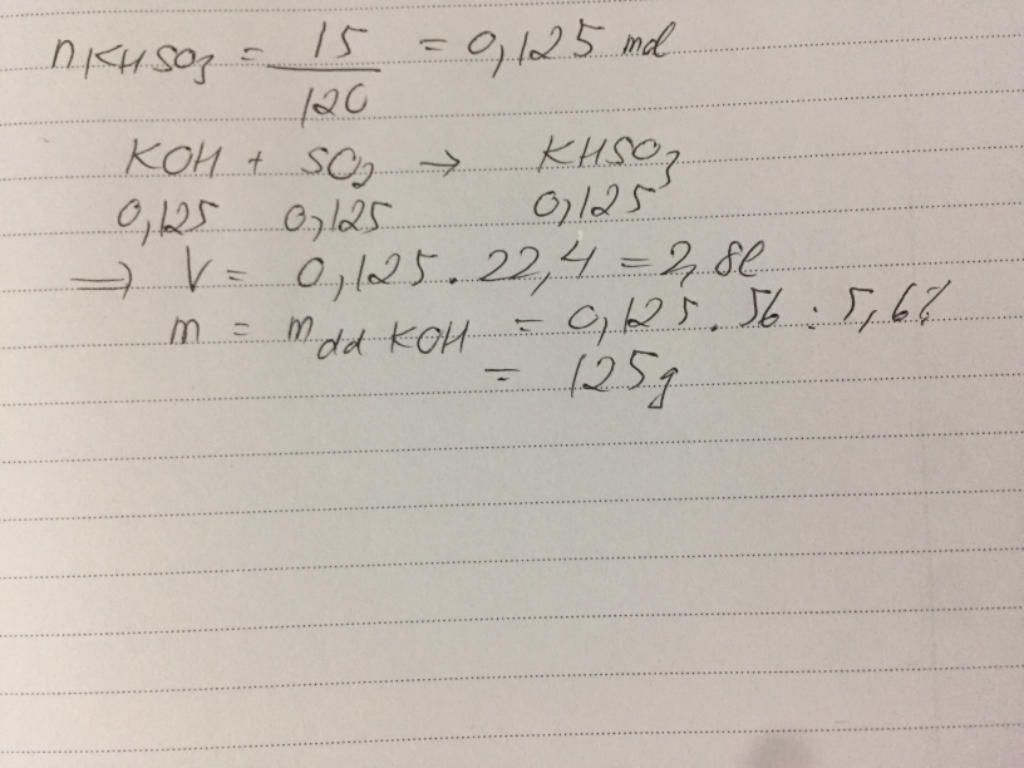 nKHSO3 = 15/120 = 0,125 mol
KOH + SO2 → KHSO3
0,125 0,125 0,125
=> V = 0,125 . 22,4 = 2,8l
m = m dd KOH = 0,125 . 56 : 5,6%
= 125g